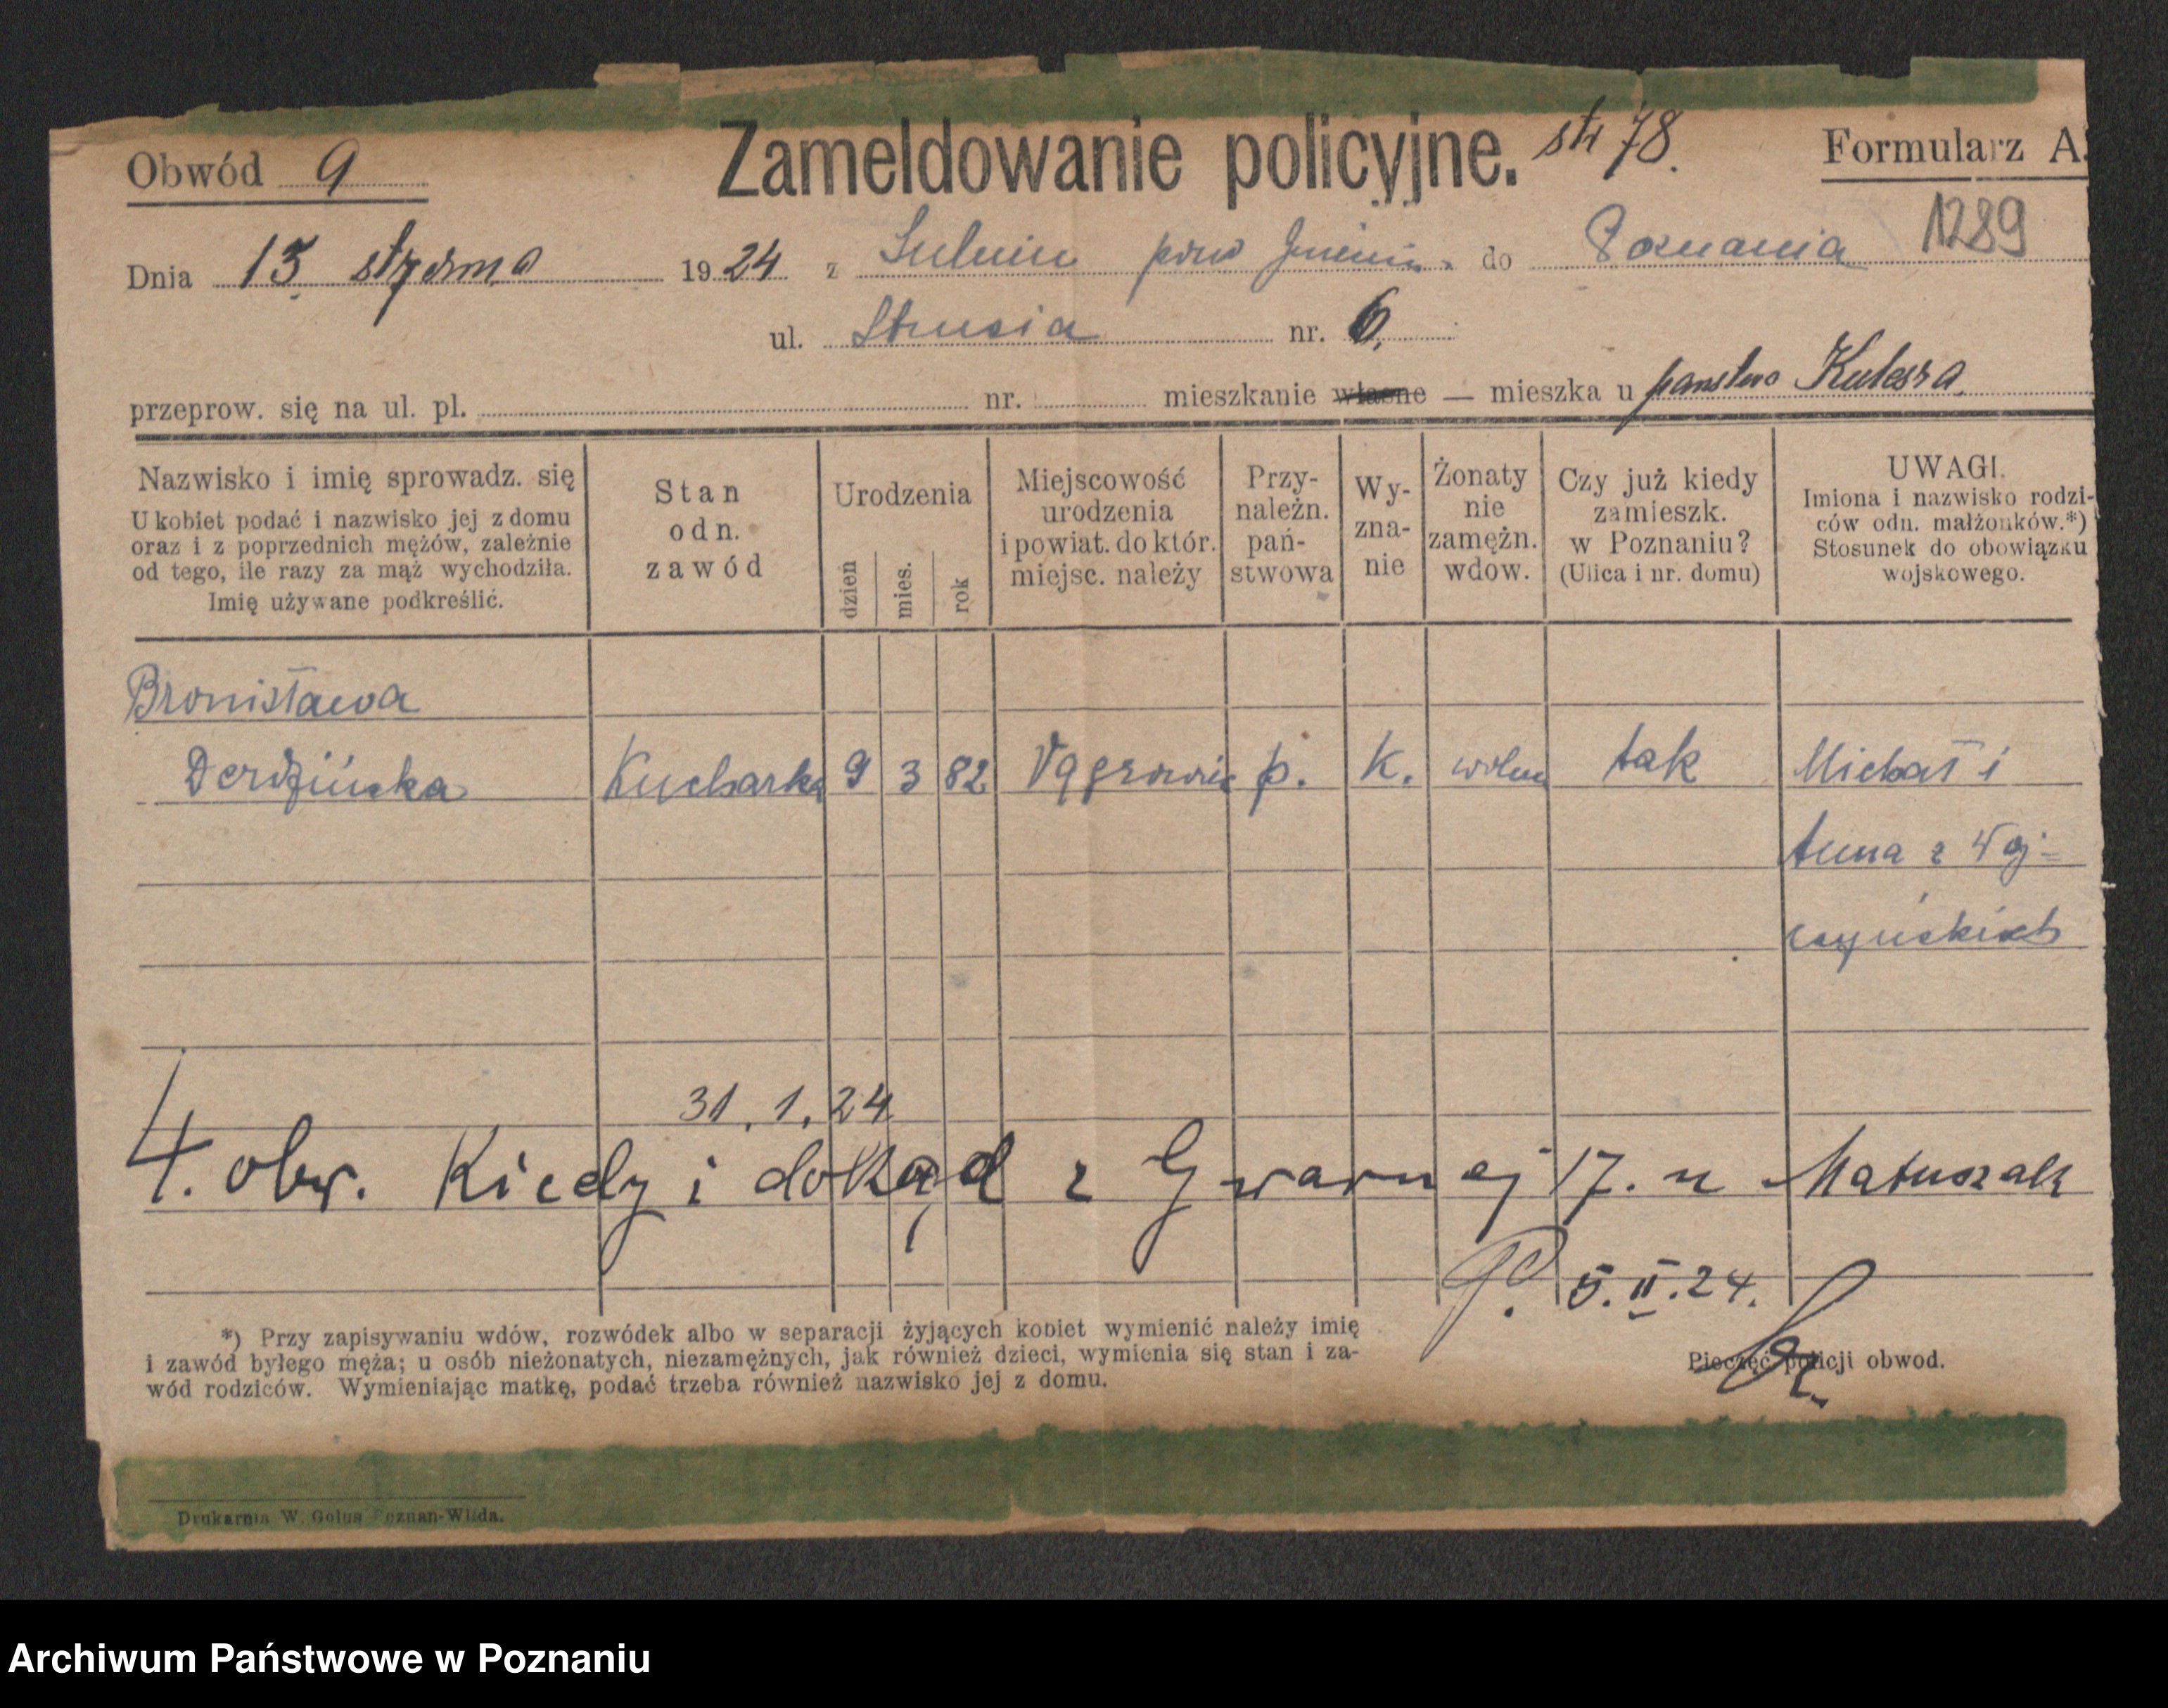 Zameldowanie policyjne. str 78.
Formularz A.
Obwód 9
1289
Dnia 13 stycznia 1924 z pow do Poznania
ul. Strusia nr. 6.
przeprow. się na ul. pl. nr. mieszkanie własne — mieszka u państwa Kulesza
Nazwisko i imię sprowadz. się
U kobiet podać i nazwisko jej z domu
oraz i z poprzednich mężów, zależnie
od tego, ile razy za mąż wychodziła.
Imię używane podkreślić.
Stan
odn.
zawód
Urodzenia
dzień
mies.
rok
Miejscowość
urodzenia
i powiat. do któr.
miejsc. należy
Przy-
należn.
pań-
stwowa
Wy-
zna-
nie
Żonaty
nie
zamężn.
wdow.
Czy już kiedy
zamieszk.
w Poznaniu?
(Ulica i nr. domu)
UWAGI.
Imiona i nazwisko rodzi-
ców odn. małżonków.*)
Stosunek do obowiązku
wojskowego.
Bronisława
Derdzińska Kucharka 9 3 82 p. K. tak Michał i
Anna z Woj=
31.1.24
4. obw. Kiedy i dokąd z Gwarnej 17. u Matuszak
5.II.24.
*) Przy zapisywaniu wdów, rozwódek albo w separacji żyjących kobiet wymienić należy imię
i zawód byłego męża; u osób nieżonatych, niezamężnych, jak również dzieci, wymienia się stan i za-
wód rodziców. Wymieniając matkę, podać trzeba również nazwisko jej z domu.
Pieczęć policji obwod.
Drukarnia W. Golus Poznan-Wilda.
Archiwum Państwowe w Poznaniu